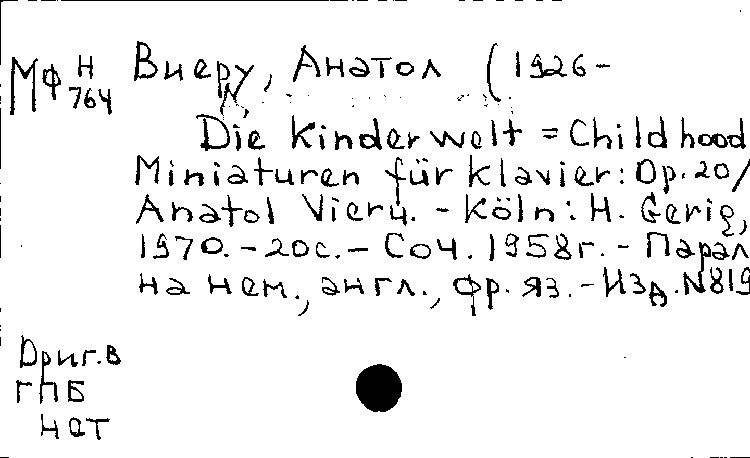 МФ Н 764 Виеру, Анатол (1926-
Die Kinderwelt = Childhood
Miniaturen für Klavier: Op. 20/
Anatol Vieru. - Köln: H. Gerig,
1970. - 20 с. - Соч. 1958 г. - Парал
на нем., англ., фр. яз. - Изд. N819
Ориг. в
ГПБ
нет